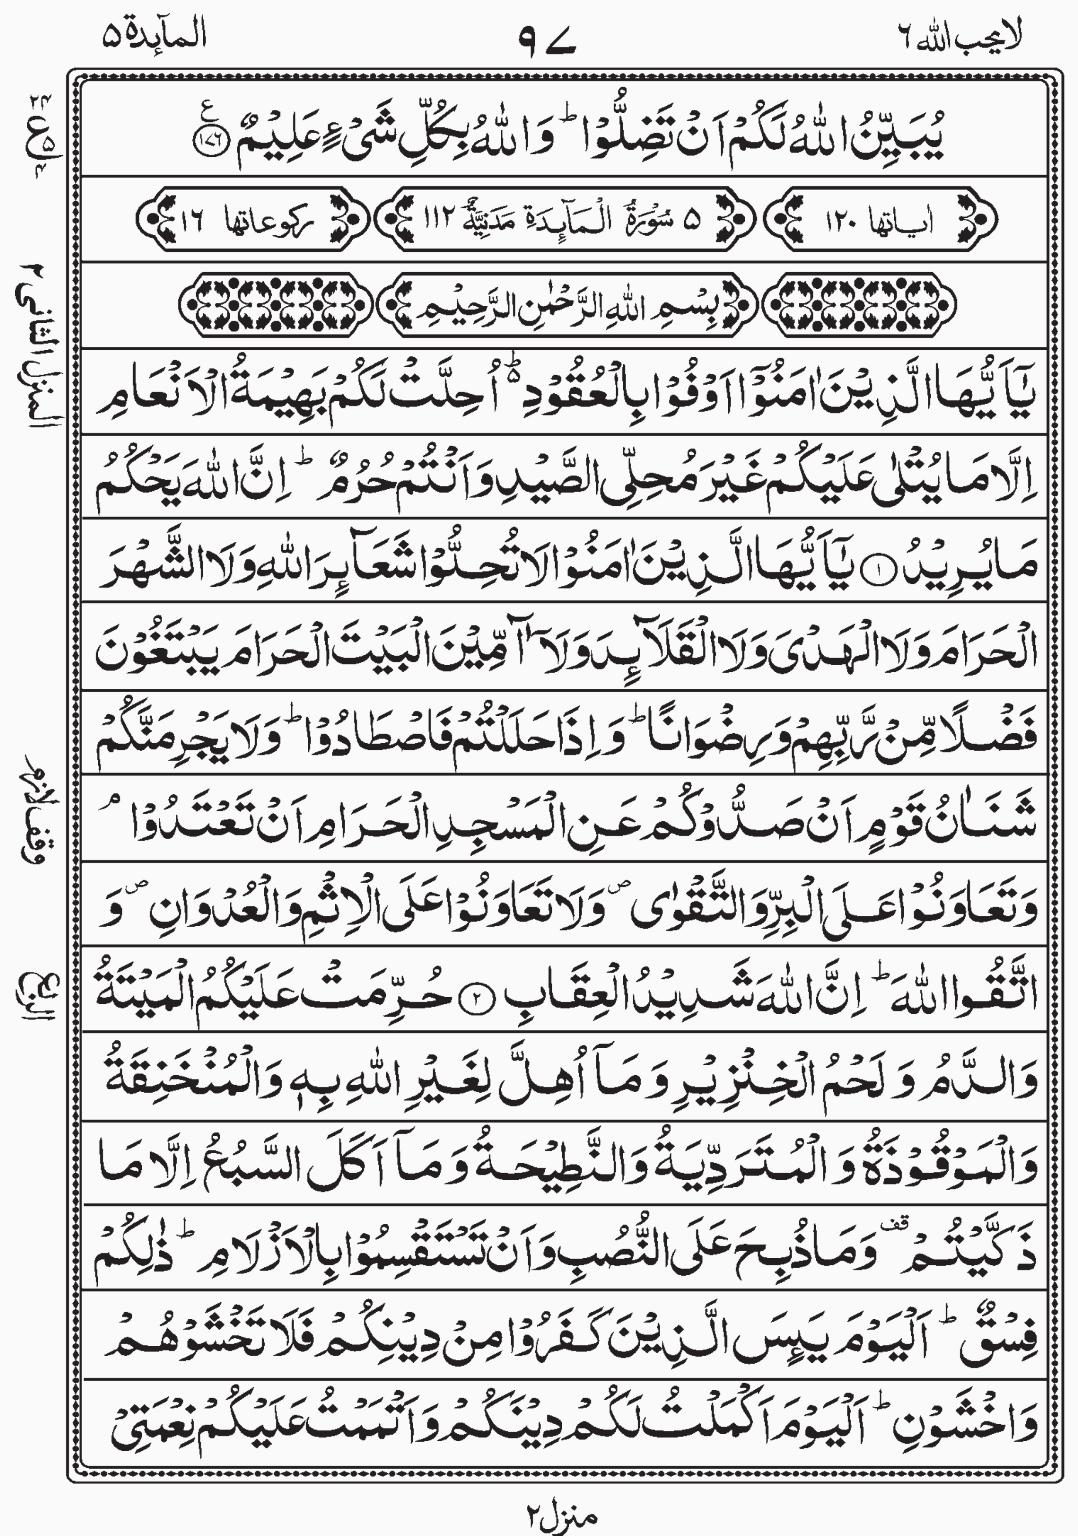 لا يحب الله ٦
٩٧
المآئدة ٥
يُبَيِّنُ اللّٰهُ لَكُمْ اَنْ تَضِلُّوْا ؕ وَ اللّٰهُ بِكُلِّ شَیْءٍ عَلِيْمٌ ﴿۱۷۶﴾ ع
اٰیاتها ١٢٠
٥ سُوْرَةُ الْمَآئِدَةِ مَدَنِيَّةٌ ١١٢
ركوعاتها ١٦
بِسْمِ اللّٰهِ الرَّحْمٰنِ الرَّحِيْمِ
يٰۤاَيُّهَا الَّذِيْنَ اٰمَنُوْۤا اَوْفُوْا بِالْعُقُوْدِ ؕ اُحِلَّتْ لَكُمْ بَهِيْمَةُ الْاَنْعَامِ
اِلَّا مَا يُتْلٰى عَلَيْكُمْ غَيْرَ مُحِلِّی الصَّيْدِ وَ اَنْتُمْ حُرُمٌ ؕ اِنَّ اللّٰهَ يَحْكُمُ
مَا يُرِيْدُ ﴿۱﴾ يٰۤاَيُّهَا الَّذِيْنَ اٰمَنُوْا لَا تُحِلُّوْا شَعَآئِرَ اللّٰهِ وَلَا الشَّهْرَ
الْحَرَامَ وَلَا الْهَدْیَ وَلَا الْقَلَآئِدَ وَلَاۤ آٰمِّيْنَ الْبَيْتَ الْحَرَامَ يَبْتَغُوْنَ
فَضْلًا مِّنْ رَّبِّهِمْ وَرِضْوَانًا ؕ وَ اِذَا حَلَلْتُمْ فَاصْطَادُوْا ؕ وَلَا يَجْرِمَنَّكُمْ
شَنَاٰنُ قَوْمٍ اَنْ صَدُّوْكُمْ عَنِ الْمَسْجِدِ الْحَرَامِ اَنْ تَعْتَدُوْا ۘ
وَتَعَاوَنُوْا عَلَى الْبِرِّ وَالتَّقْوٰى ۪ وَلَا تَعَاوَنُوْا عَلَى الْاِثْمِ وَالْعُدْوَانِ ۪ وَ
اتَّقُوا اللّٰهَ ؕ اِنَّ اللّٰهَ شَدِيْدُ الْعِقَابِ ﴿۲﴾ حُرِّمَتْ عَلَيْكُمُ الْمَيْتَةُ
وَالدَّمُ وَ لَحْمُ الْخِنْزِيْرِ وَ مَاۤ اُهِلَّ لِغَيْرِ اللّٰهِ بِهٖ وَالْمُنْخَنِقَةُ
وَالْمَوْقُوْذَةُ وَ الْمُتَرَدِّيَةُ وَالنَّطِيْحَةُ وَ مَاۤ اَكَلَ السَّبُعُ اِلَّا مَا
ذَكَّيْتُمْ ۫ وَ مَا ذُبِحَ عَلَى النُّصُبِ وَ اَنْ تَسْتَقْسِمُوْا بِالْاَزْلَامِ ؕ ذٰلِكُمْ
فِسْقٌ ؕ اَلْيَوْمَ يَئِسَ الَّذِيْنَ كَفَرُوْا مِنْ دِيْنِكُمْ فَلَا تَخْشَوْهُمْ
وَاخْشَوْنِ ؕ اَلْيَوْمَ اَكْمَلْتُ لَكُمْ دِيْنَكُمْ وَ اَتْمَمْتُ عَلَيْكُمْ نِعْمَتِیْ
المنزل الثانی ٢
وقف لازم
الربع
منزل ٢